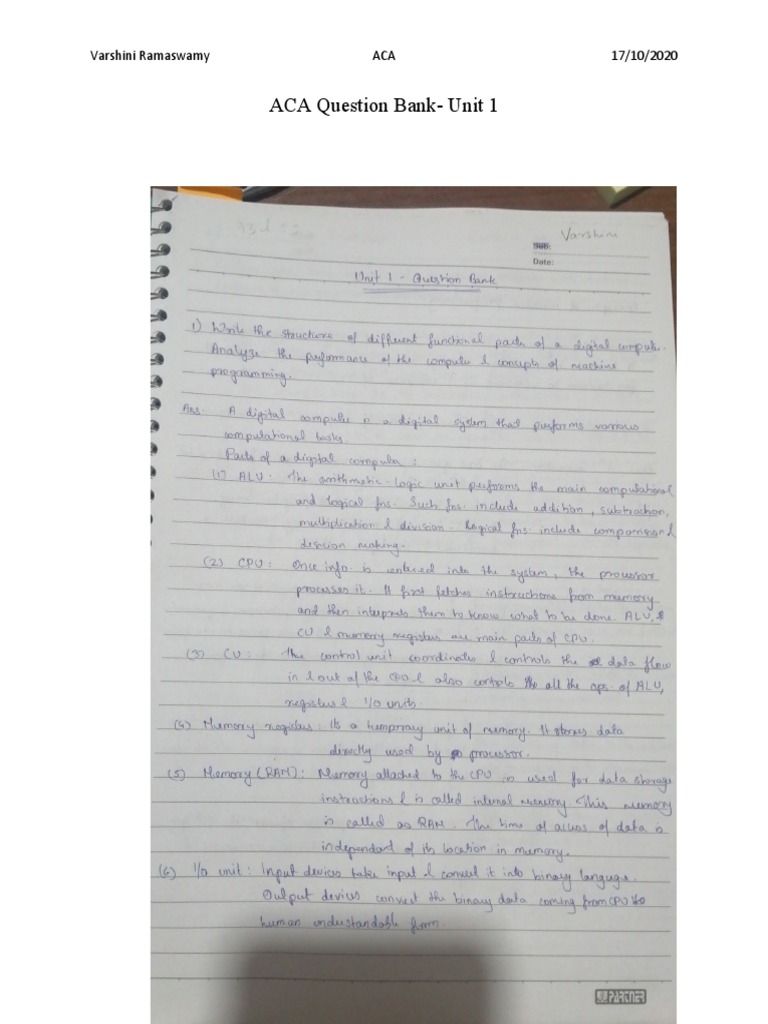 Varshini Ramaswamy ACA 17/10/2020
ACA Question Bank- Unit 1
Varshini
SUB:
Date:
Unit 1 - Question Bank
1) Write the structure of different functional parts of a digital computer.
Analyze the performance of the computer & concepts of machine
programming.
Ans. A digital computer is a digital system that performs various
computational tasks.
Parts of a digital computer :
(1) ALU : The arithmetic-logic unit performs the main computational
and logical fns. Such fns. include addition, subtraction,
multiplication & division. Logical fns. include comparison &
decision making.
(2) CPU : Once info. is entered into the system, the processor
processes it. It first fetches instructions from memory
and then interprets them to know what to be done. ALU,
CU & memory registers are main parts of CPU.
(3) CU : The control unit coordinates & controls the data flow
in & out of the CPU & also controls all the ops. of ALU,
registers & I/O units.
(4) Memory registers : Its a temporary unit of memory. It stores data
directly used by processor.
(5) Memory (RAM) : Memory attached to the CPU is used for data storage
instructions & is called internal memory. This memory
is called as RAM. The time of access of data is
independant of its location in memory.
(6) I/O unit : Input devices take input & convert it into binary language.
Output devices convert the binary data coming from CPU to
human understandable form.
PARTNER